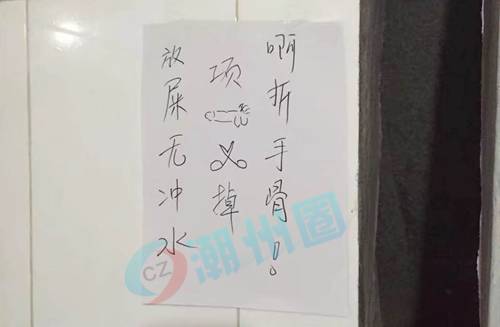 放屎无冲水
项掉
啊折手骨！
CZ 潮州圈